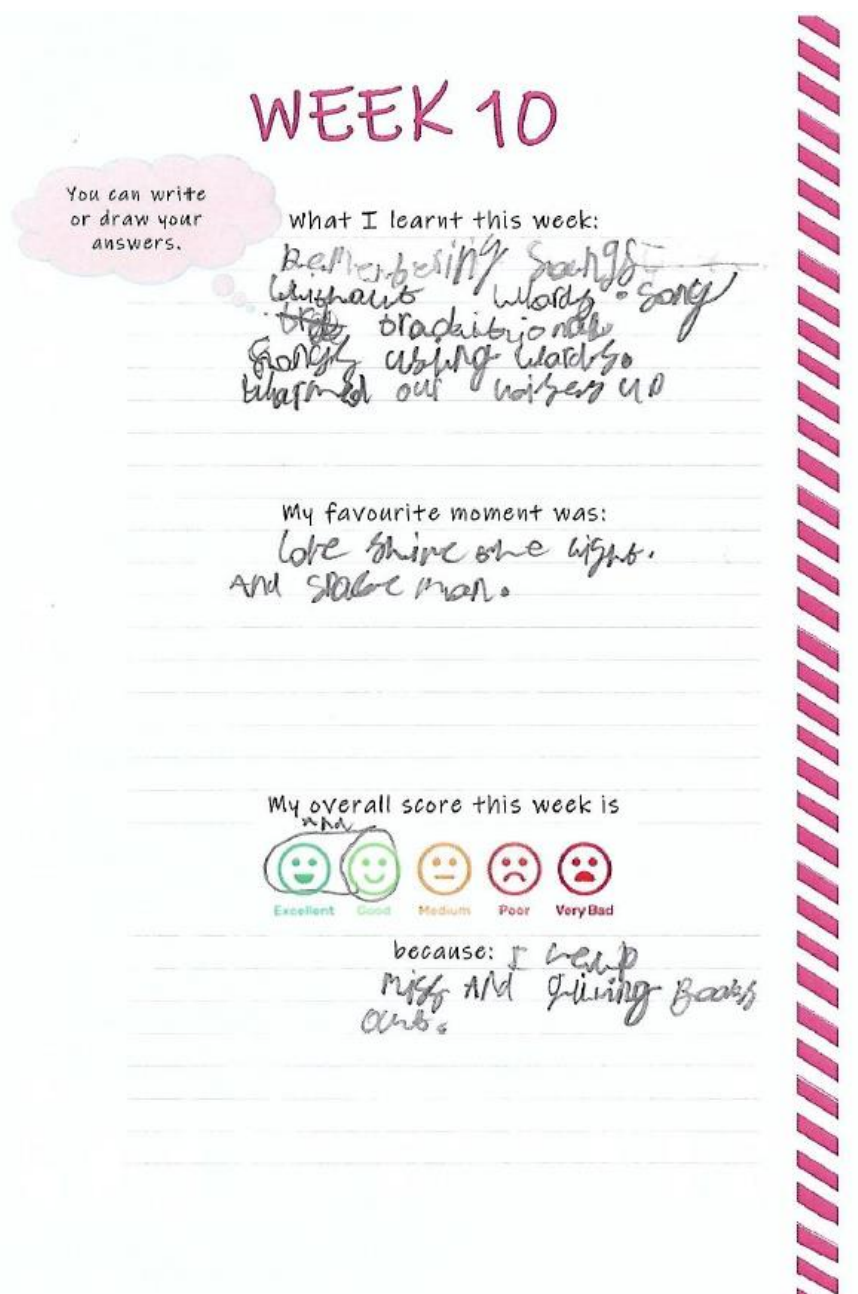 WEEK 10
You can write
or draw your
answers.
What I learnt this week:
Remenbering Songs
Without words. Song
traditional
Songs using words.
Warmed our voises up
My favourite moment was:
shine the light.
And space man.
My overall score this week is
And
Excellent Good Medium Poor Very Bad
because: I help
miss And giving Books
out.